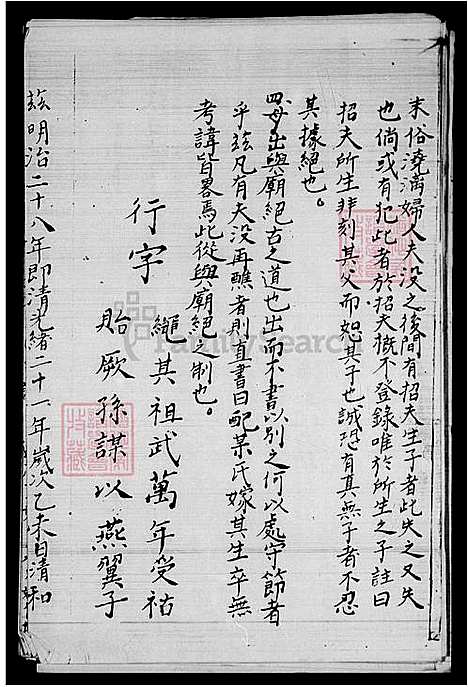 末俗澆漓婦人夫没之後間有招夫生子者此失之又失
也倘或有犯此者於招夫概不登錄唯於所生之子註曰
招夫所生非刻其父而恕其子也誠恐有其無子者不忍
其據絕也。
四母出與廟絕古之道也出而不書以別之何以處守節者
乎兹凡有夫没再醮者則直書曰配某氏嫁其生卒無
考諱皆畧焉此從與廟絕之制也。
行字
繩其祖武萬年受祜
貽厥孫謀以燕翼子
兹明治二十八年即清光緒二十一年歲次乙未日清和
FamilySearch